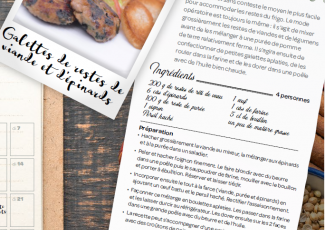 Galettes de restes de
viande et d'épinards
conteste le moyen le plus facile
pour accommoder les restes du frigo. Le mode
opératoire est toujours le même : il s'agit de mixer
grossièrement les restes de viandes et de légumes
avant de les mélanger à une purée de pomme
de terre relativement ferme. Il s'agira ensuite de
confectionner de petites galettes aplaties, de les
rouler dans la farine et de les dorer dans une poêle
avec de l'huile bien chaude.
Ingrédients
4 personnes
200 g de reste de rôti de veau
6 càs d'épinards
100 g de reste de purée
1 oignon
Persil haché
1 œuf
1 càs de farine
5 cl de bouillon
un peu de matière grasse
Préparation
• Hacher grossièrement la viande au mixeur, la mélanger aux épinards
et à la purée dans un saladier.
• Peler et hacher l'oignon finement. Le faire blondir avec du beurre
dans une poêle puis le saupoudrer de farine, mouiller avec le bouillon
et porter à ébullition. Réserver et laisser tiédir.
• Incorporer ensuite le tout à la farce (viande, purée et épinards) en
ajoutant un œuf battu et le persil haché. Rectifier l'assaisonnement.
• Façonner ce mélange en boulettes aplaties. Les passer dans la farine
et les laisser durcir au réfrigérateur. Les dorer ensuite sur les 2 faces
dans une grande poêle avec du beurre et de l'huile.
• La recette peut s'accompagner d'une